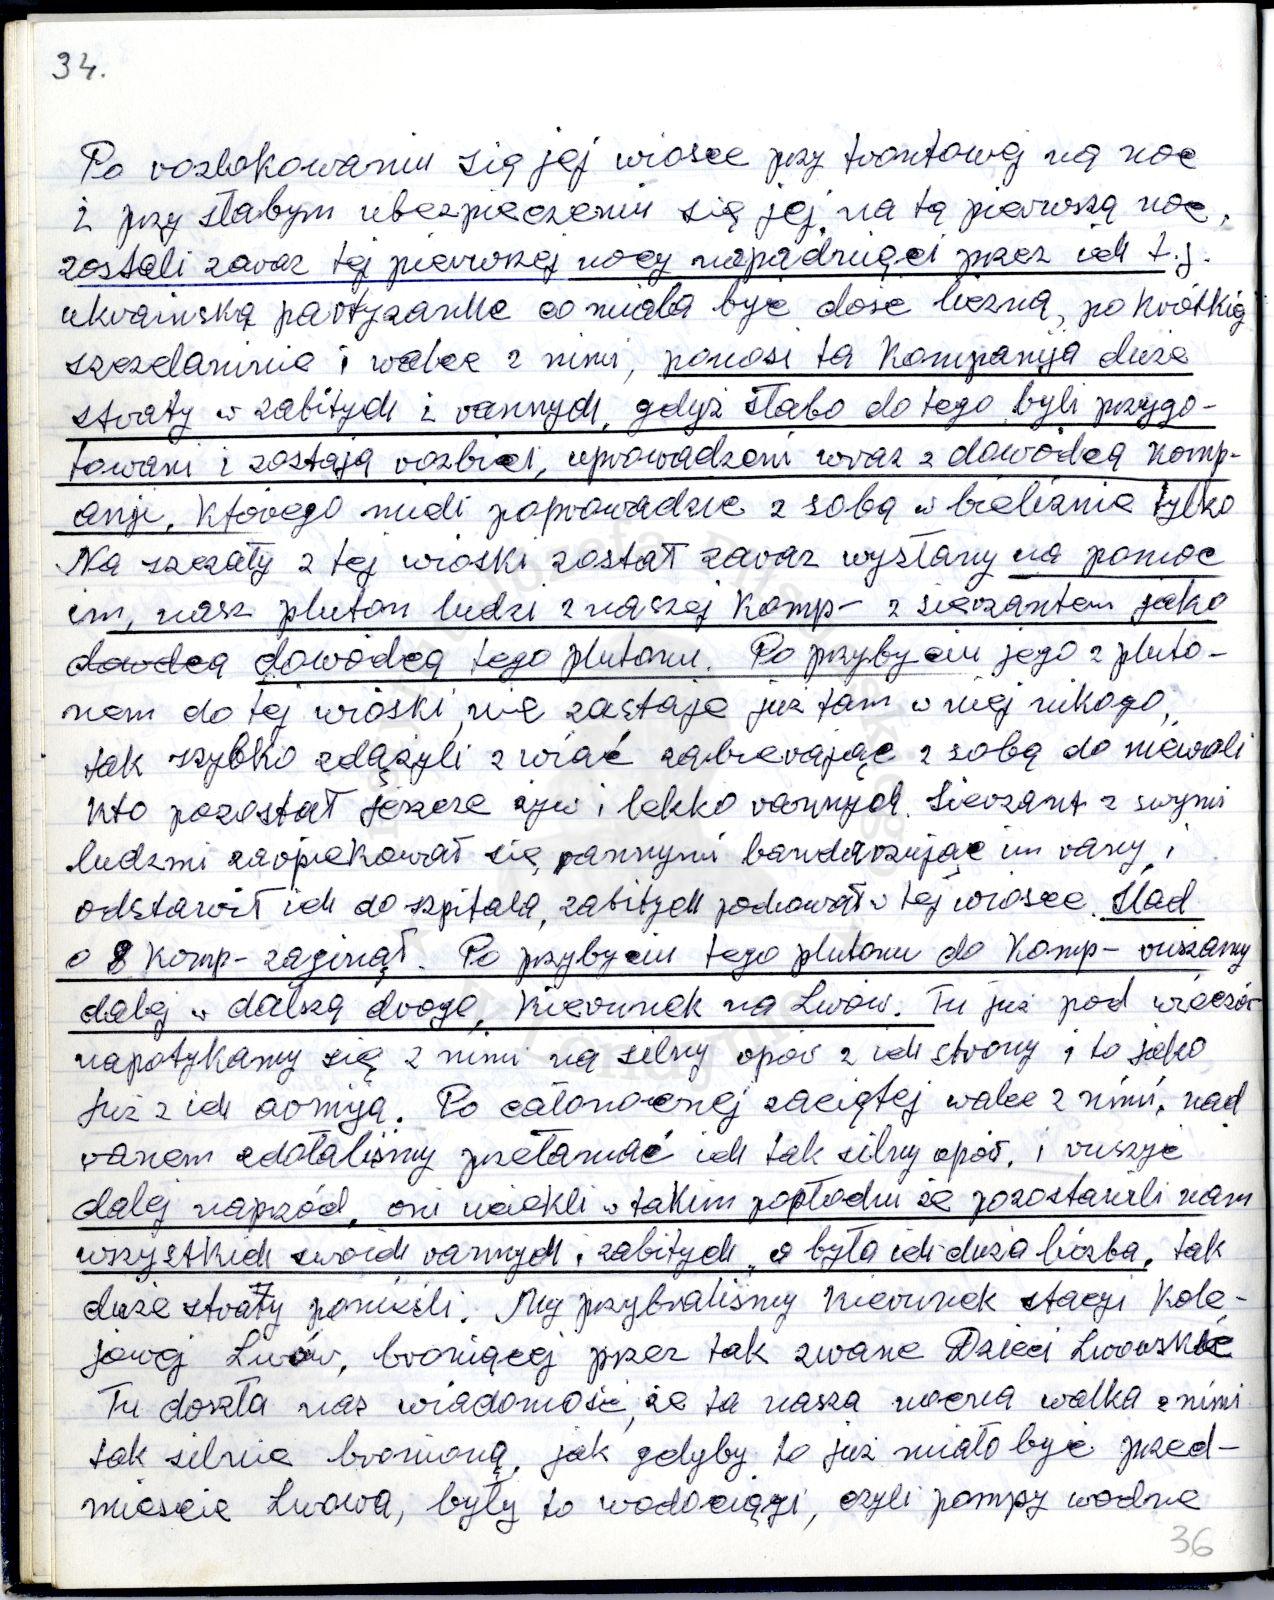 34.
Po rozlokowaniu się jej wiosce przy frontowej ną noc
i przy słabym ubezpieczeniu się jej, na tą pierwszą noc,
zostali zaraz tej pierwszej nocy napadnięci przez ich t.j.
ukraińską partyzantke co miała być dość liczną, po krótkię
i walce z nimi, ponosi ta Kompanija duże
straty w zabitych i rannych, gdyż słabo do tego byli przygo-
towani i zostają rozbici, uprowadzeni wraz z dowódcą Komp-
anji, Którego mieli poprowadzić z sobą w bieliznie tylko
Na szczały z tej wioski został zaraz wysłany na pomoc
im, nasz pluton ludzi z naszej Komp- z sierzantem jako
dowdcą dowódcą tego plutonu. Po przybyciu jego z pluto-
nem do tej wioski, nie zastaje już tam w niej nikogo,
tak szybko zdążyli zwiać zabierając z sobą do niewoli
Kto pozostał jeszcze żyw i lekko rannych. Sierzant z swymi
ludzmi zaopiekował się rannymi bandarzując im rany i
odstawił ich do szpitala, zabitych pochował w tej wiosce. Ślad
o 8 Komp- zaginął. Po przybyciu tego plutonu do Komp- ruszamy
dalej w dalszą droge, Kierunek na Lwów. Tu już pod wieczór
napotykamy się z nimi na silny opór z ich strony i to jako
już z ich armiją. Po całonocnej zaciętej walce z nimi, nad
ranem zdołaliśmy przełamać ich tak silny opór, i ruszyć
dalej naprzód, oni uciekli w takim popłochu że pozostawili nam
wszystkich swoich rannych i zabitych, a była ich duża liczba, tak
duże straty ponieśli. My przybraliśmy Kierunek stacyi Kole-
jowej Lwów, broniącej przez tak zwane Dzieci Lwowskie
Tu doszła nas wiadomość, że ta nasza nocna walka z nimi
tak silnie bronioną, jak gdyby to już miało być przed-
mieście Lwowa, były to wodociągi, czyli pompy wodne
36